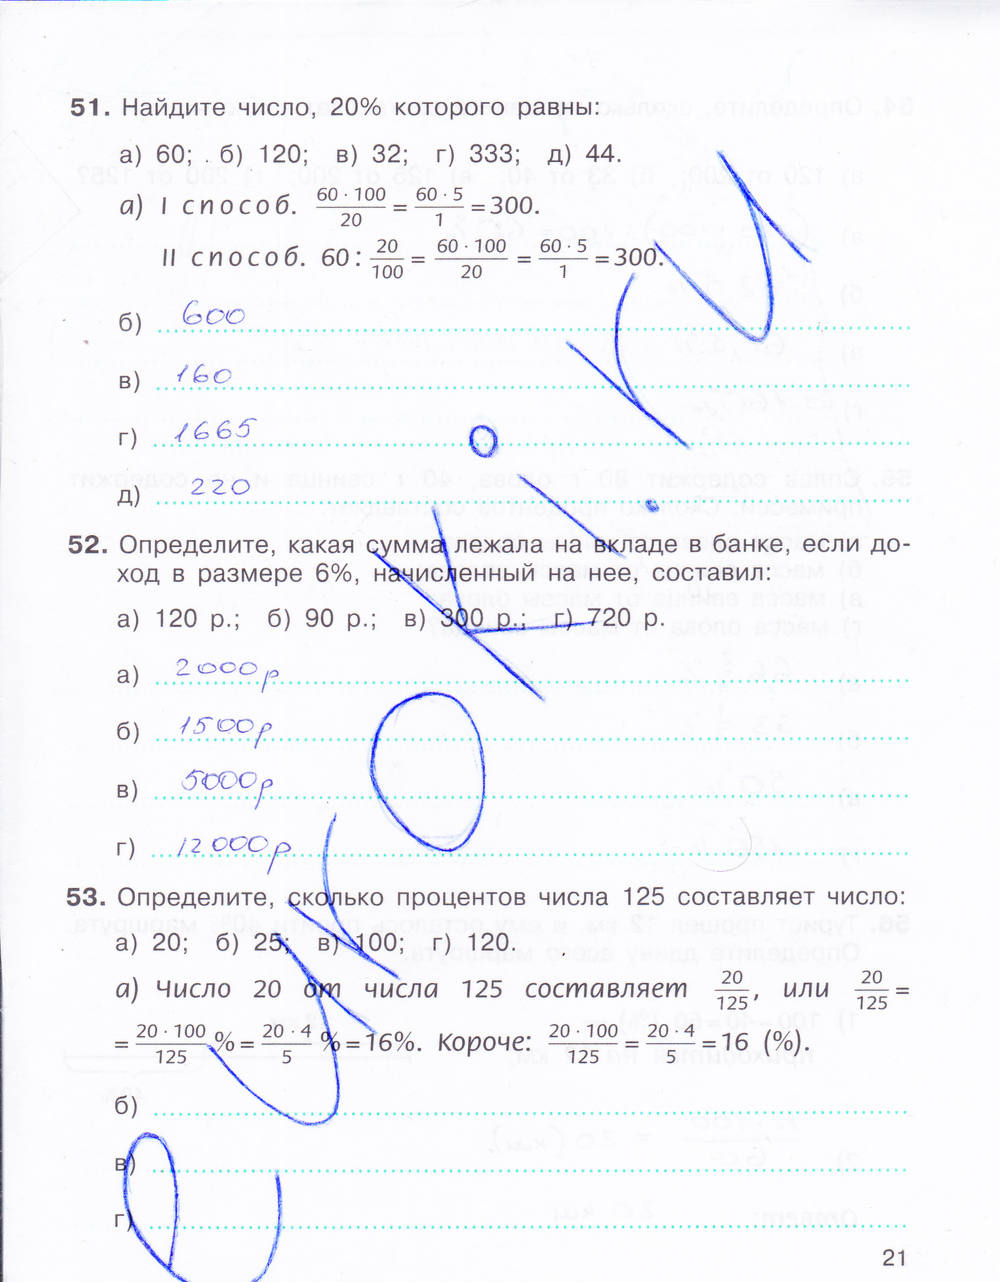 51. Найдите число, 20% которого равны:
а) 60; б) 120; в) 32; г) 333; д) 44.
а) I способ. 60 · 100 / 20 = 60 · 5 / 1 = 300.
II способ. 60 : 20 / 100 = 60 · 100 / 20 = 60 · 5 / 1 = 300.
б) 600
в) 160
г) 1665
д) 220
52. Определите, какая сумма лежала на вкладе в банке, если до-
ход в размере 6%, начисленный на нее, составил:
а) 120 р.; б) 90 р.; в) 300 р.; г) 720 р.
а) 2000р
б) 1500р
в) 5000р
г) 12000р
53. Определите, сколько процентов числа 125 составляет число:
а) 20; б) 25; в) 100; г) 120.
а) Число 20 от числа 125 составляет 20 / 125, или 20 / 125 =
= 20 · 100 / 125 % = 20 · 4 / 5 % = 16%. Короче: 20 · 100 / 125 = 20 · 4 / 5 = 16 (%).
б)
в)
г)
21